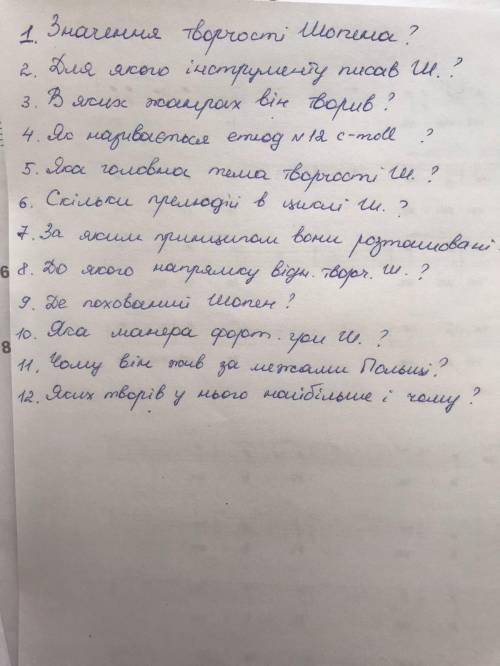 1. Значення творчості Шопена?
2. Для якого інструменту писав Ш.?
3. В яких жанрах він творив?
4. Як називається етюд №12 c-moll ?
5. Яка головна тема творчості Ш.?
6. Скільки прелюдій в циклі Ш.?
7. За яким принципом вони розташовані.
8. До якого напрямку відн. творч. Ш.?
9. Де похований Шопен?
10. Яка манера форт. гри Ш. ?
11. Чому він жив за межами Польщі?
12. Яких творів у нього найбільше і чому?
6
8